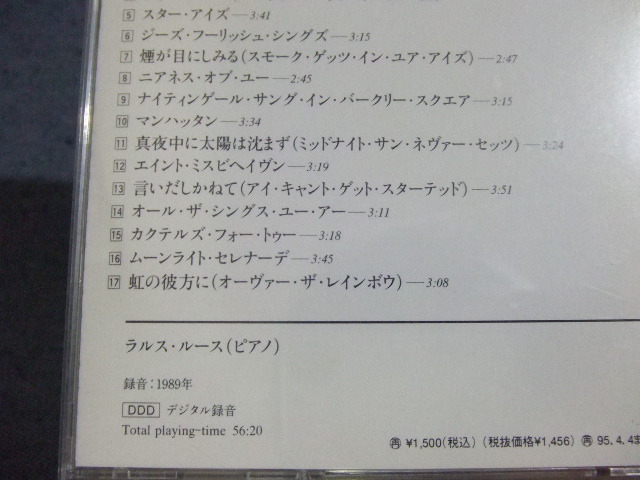 5 スター・アイズ—3:41
6 ジーズ・フーリッシュ・シングズ—3:15
7 煙が目にしみる(スモーク・ゲッツ・イン・ユア・アイズ)—2:47
8 ニアネス・オブ・ユー—2:45
9 ナイティンゲール・サング・イン・バークリー・スクエア—3:15
10 マンハッタン—3:34
11 真夜中に太陽は沈まず(ミッドナイト・サン・ネヴァー・セッツ)—3:24
12 エイント・ミスビヘイヴン—3:19
13 言いだしかねて(アイ・キャント・ゲット・スターテッド)—3:51
14 オール・ザ・シングス・ユー・アー—3:11
15 カクテルズ・フォー・トゥー—3:18
16 ムーンライト・セレナーデ—3:45
17 虹の彼方に(オーヴァー・ザ・レインボウ)—3:08
ラルス・ルース(ピアノ)
録音:1989年
DDD デジタル録音
Total playing-time 56:20
㋲¥1,500(税込) (税抜価格¥1,456) ㋲95.4.4ま